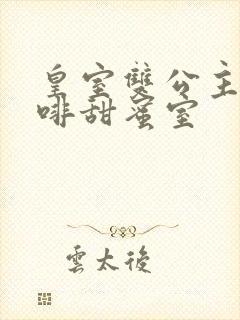 皇室雙公主
啡甜蜜室
雲太後